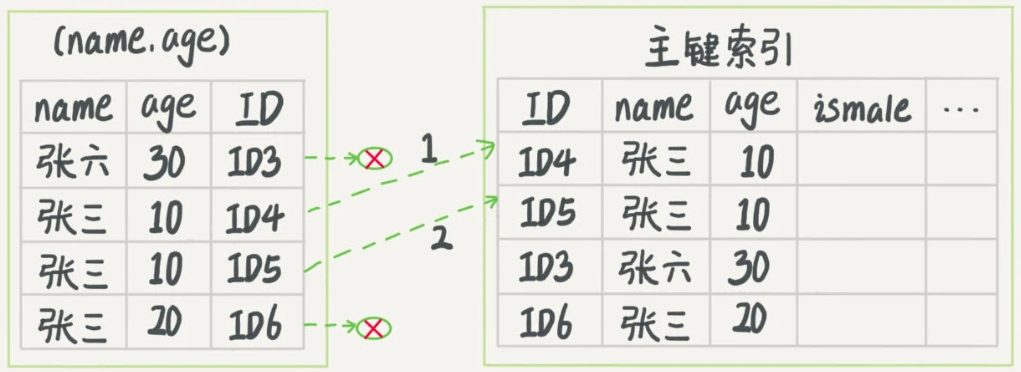 (name.age)
name age ID
张六 30 ID3
张三 10 ID4
张三 10 ID5
张三 20 ID6
1
2
主键索引
ID name age ismale ...
ID4 张三 10
ID5 张三 10
ID3 张六 30
ID6 张三 20